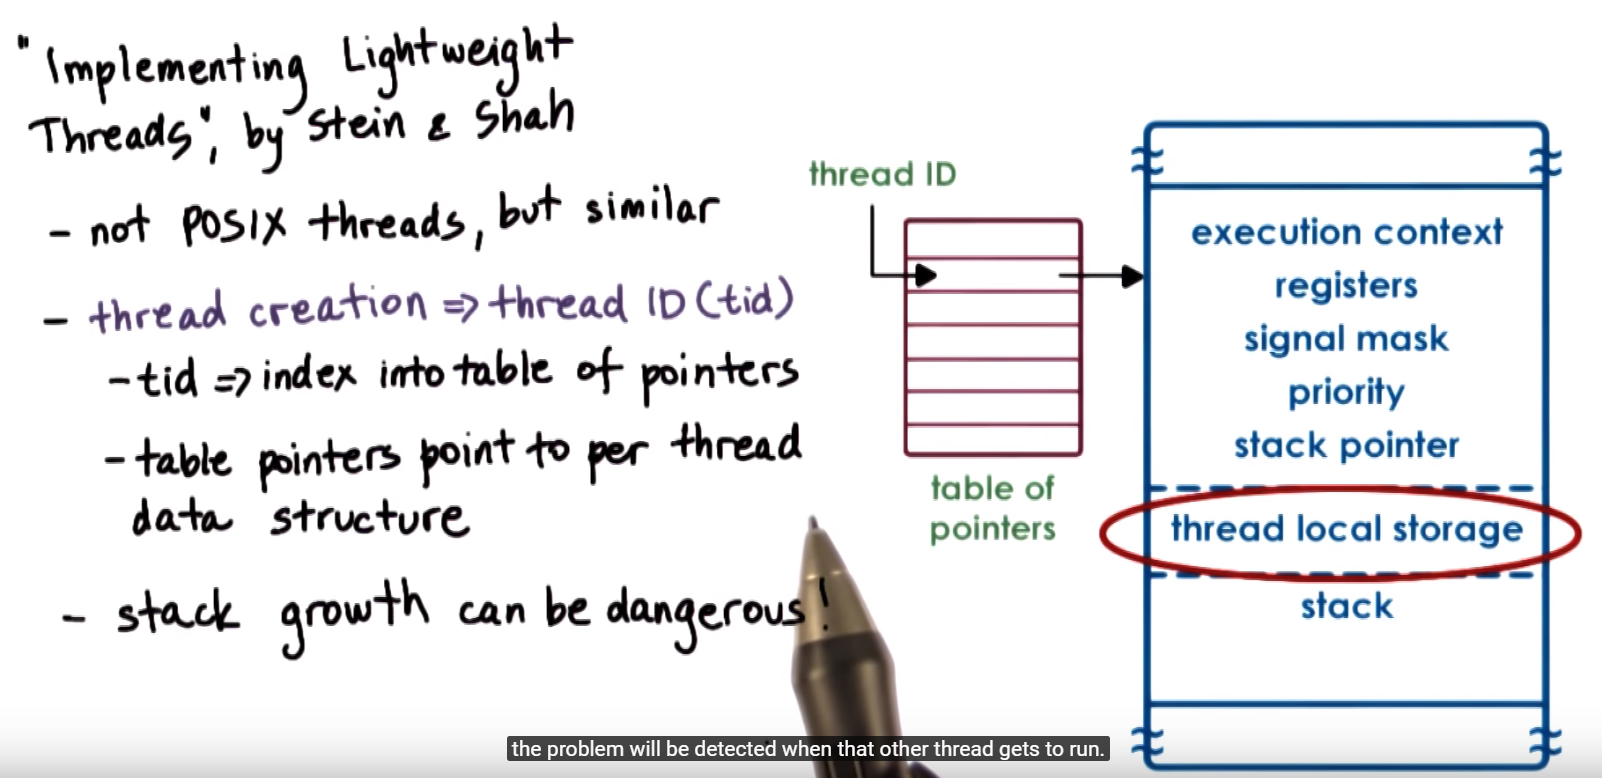 "Implementing Lightweight
Threads", by Stein & Shah
- not POSIX threads, but similar
- thread creation => thread ID (tid)
- tid => index into table of pointers
- table pointers point to per thread
data structure
- stack growth can be dangerous!
thread ID
table of
pointers
execution context
registers
signal mask
priority
stack pointer
thread local storage
stack
the problem will be detected when that other thread gets to run.